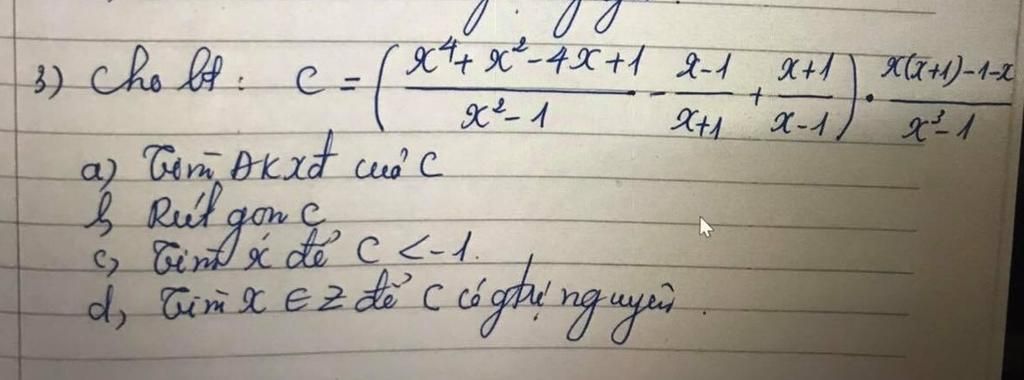 3) Cho bt : C = ( (x⁴ + x² - 4x + 1)/(x² - 1) - (x-1)/(x+1) + (x+1)/(x-1) ) . (x(x+1) - 1 - x)/(x³ - 1)
a) Tìm ĐKXĐ của C
b, Rút gọn C
c, Tìm x để C < -1.
d, Tìm x ∈ Z để C có gtrị nguyên.